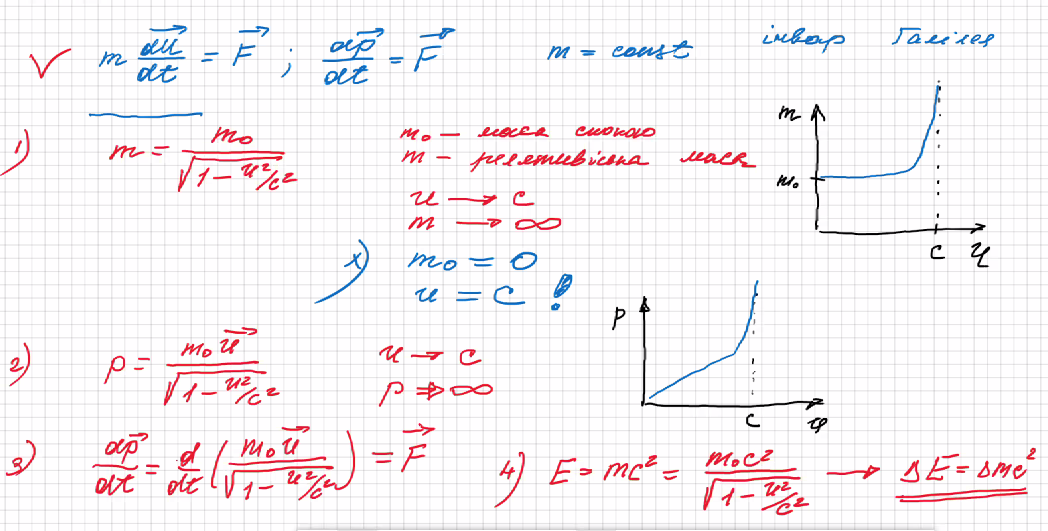 m du⃗/dt = F⃗ ; dp⃗/dt = F⃗ m = const інвар Галілея
1) m = m₀/√(1 - u²/c²)
m₀ – маса спокою
m – релятивістська маса
u → c
m → ∞
x) m₀ = 0
u = c !
m
m₀
c u
2) p = m₀u⃗/√(1 - u²/c²)
u → c
p ⇒ ∞
p
c u
3) dp⃗/dt = d/dt (m₀u⃗/√(1 - u²/c²)) = F⃗
4) E = mc² = m₀c²/√(1 - u²/c²) → ΔE = Δmc²